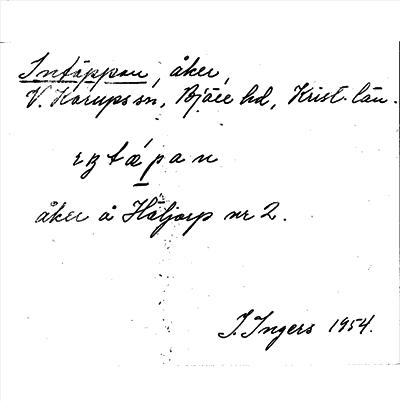 Intäppan, åker,
V. Karups sn, Bjäre hd, Krist. län.
åker å Håljorp nr 2.
I. Ingers 1954.